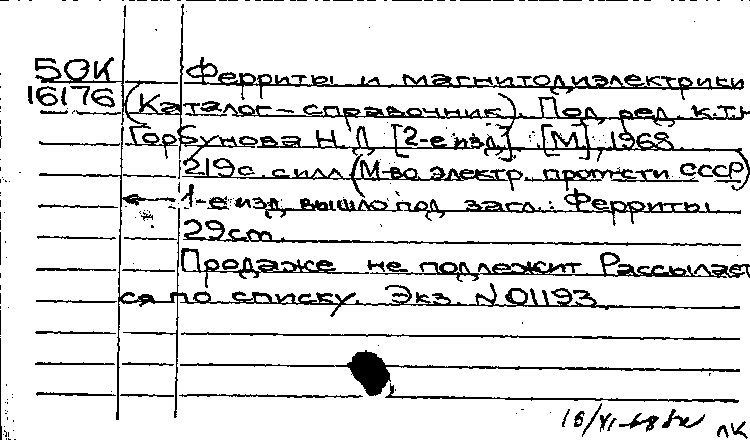 50К Ферриты и магнитодиэлектрики
16176 (Каталог-справочник). Под ред. к.т.н
Горбунова Н.Д. [2-е изд]. [М], 1968
219с. с илл (М-во электр. пром-сти СССР)
1-е изд. вышло под загл.: Ферриты
29cm.
Продаже не подлежит Рассылает
ся по списку. Экз. N01193
лк